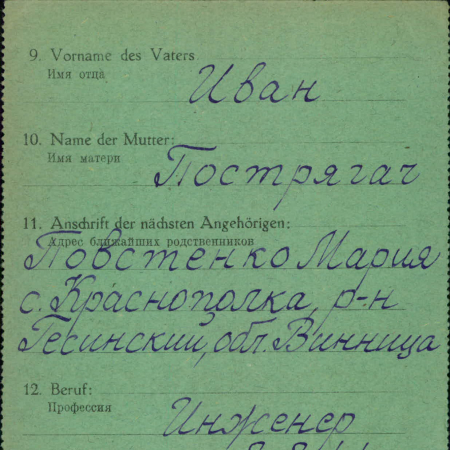 9. Vorname des Vaters
Имя отца
Иван
10. Name der Mutter:
Имя матери
Пострягач
11. Anschrift der nächsten Angehörigen:
Адрес ближайших родственников
Повстенко Мария
с. Краснополка, р-н
Гесинский, обл. Винница
12. Beruf:
Профессия
Инженер